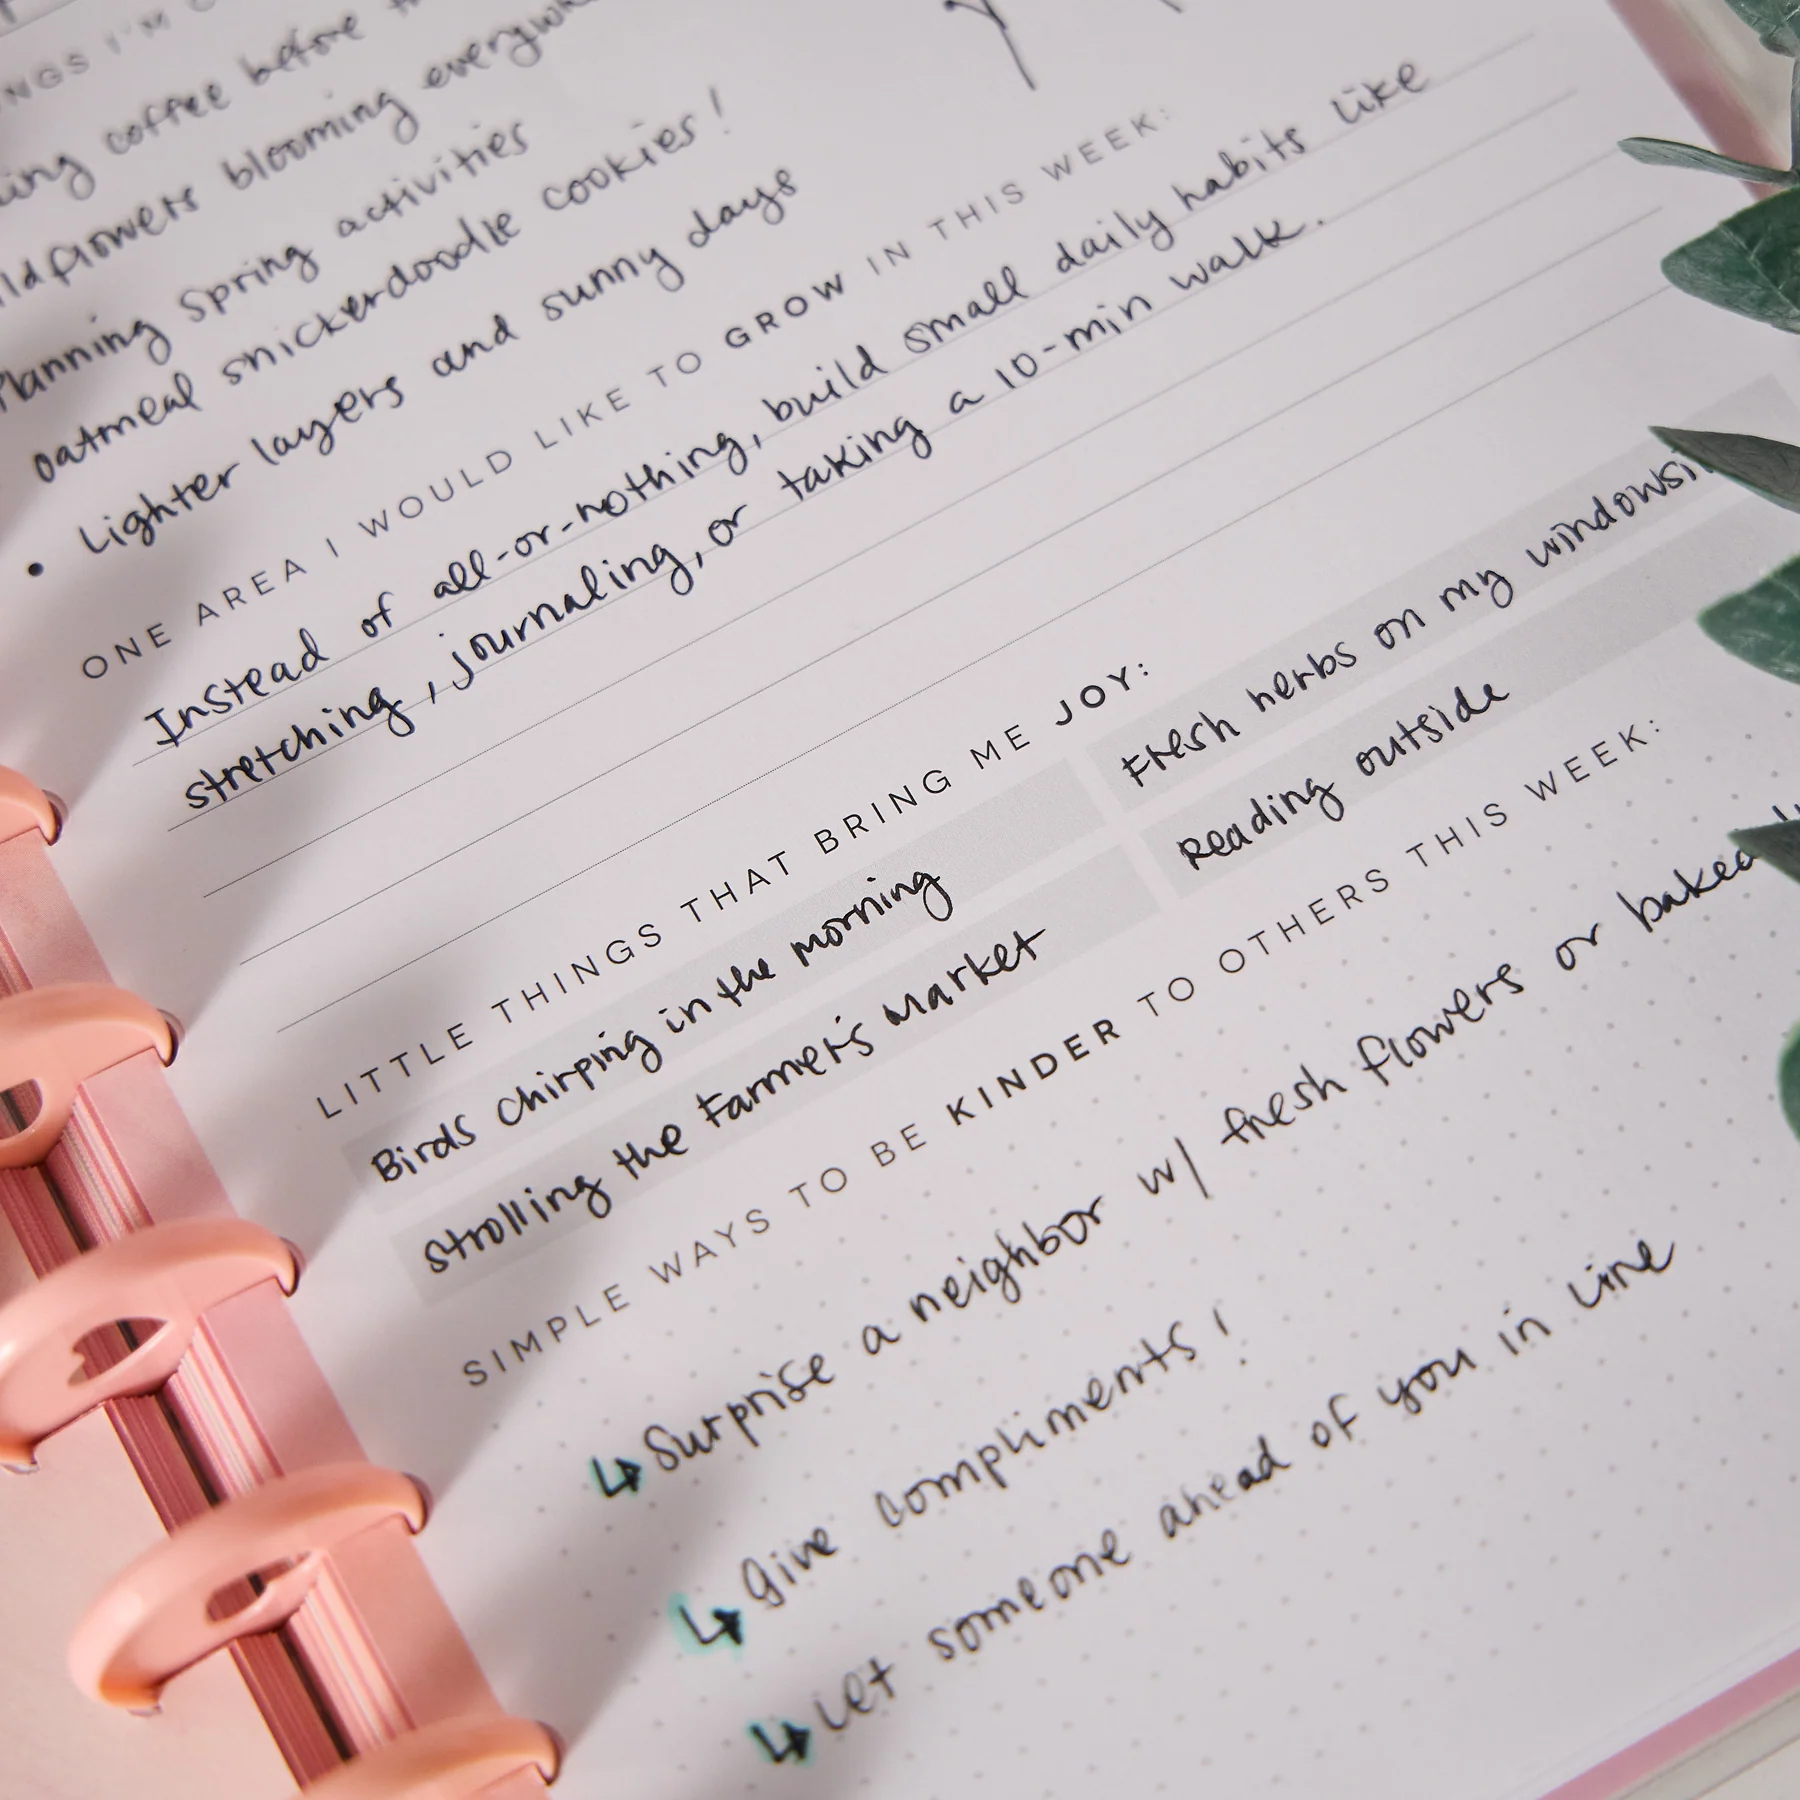 coffee before
blooming
Planning spring activities
oatmeal snickerdoodle cookies!
• Lighter layers and sunny days
ONE AREA I WOULD LIKE TO GROW IN THIS WEEK:
Instead of all-or-nothing, build small daily habits like
stretching, journaling, or taking a 10-min walk.
LITTLE THINGS THAT BRING ME JOY:
Birds chirping in the morning
Fresh herbs on my
strolling the Farmer's Market
Reading outside
SIMPLE WAYS TO BE KINDER TO OTHERS THIS WEEK:
↳ Surprise a neighbor w/ fresh flowers or baked
↳ Give compliments!
↳ Let someone ahead of you in line